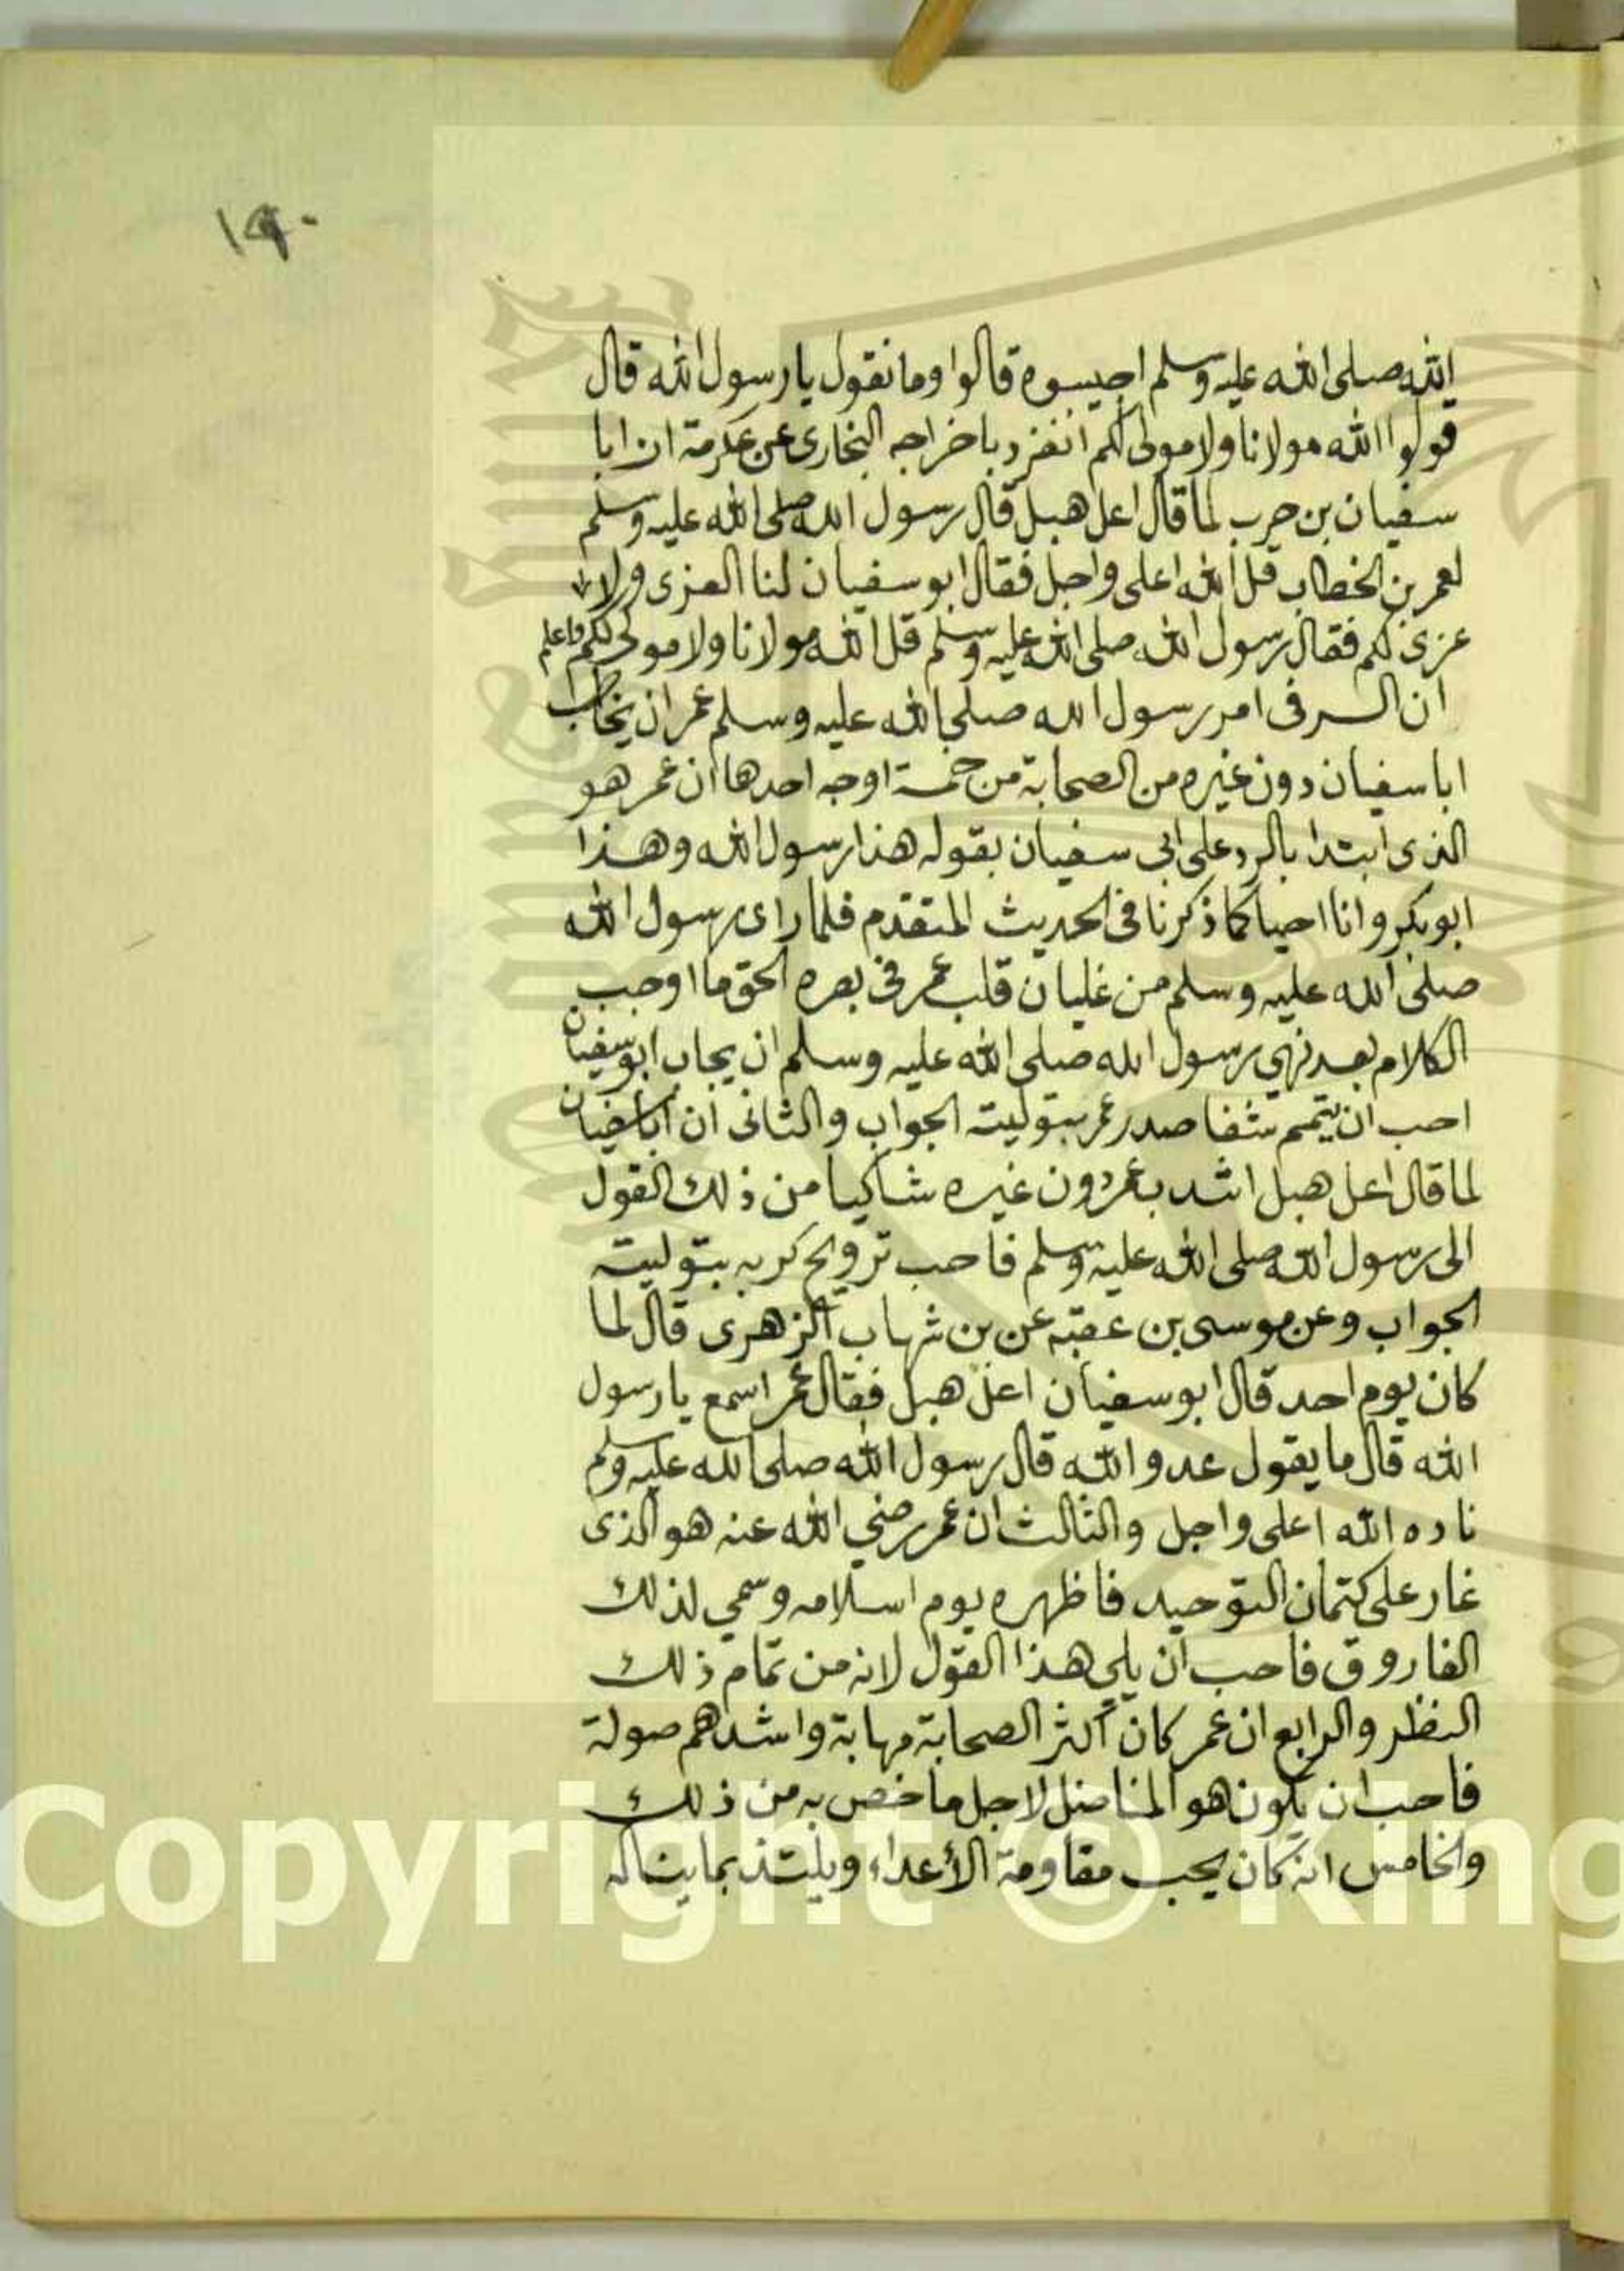 ١٩٠
الله صلى الله عليه وسلم اجيبوه قالوا وما نقول يا رسول الله قال
قولوا الله مولانا ولا مولى لكم انفرد باخراجه البخارى عن عكرمة ان ابا
سفيان بن حرب لما قال اعل هبل قال رسول الله صلى الله عليه وسلم
لعمر بن الخطاب قل الله اعلى واجل فقال ابو سفيان لنا العزى ولا
عزى لكم فقال رسول الله صلى الله عليه وسلم قل الله مولانا ولا مولى لكم فاعلم
ان السر فى امر رسول الله صلى الله عليه وسلم عمر ان يخاطب
ابا سفيان دون غيره من الصحابة من خمسة اوجه احدها ان عمر هو
الذى ابتدا بالرد على ابى سفيان بقوله هذا رسول الله وهذا
ابو بكر وانا احيا كما ذكرنا فى الحديث المتقدم فلما راى رسول الله
صلى الله عليه وسلم من غليان قلب عمر فى بصره الحق ما اوجب
الكلام بعد نهي رسول الله صلى الله عليه وسلم ان يجاب ابو سفيان
احب ان يتمم شفا صدر عمر بتوليته الجواب والثانى ان ابا سفيان
لما قال اعل هبل اشد بعمر دون غيره شاكيا من ذلك القول
الى رسول الله صلى الله عليه وسلم فاحب ترويح كربه بتوليته
الجواب وعن موسى بن عقبه عن بن شهاب الزهرى قال لما
كان يوم احد قال ابو سفيان اعل هبل فقال عمر اسمع يا رسول
الله قال ما يقول عدو الله قال رسول الله صلى الله عليه وسلم
ناده الله اعلى واجل والثالث ان عمر رضي الله عنه هو الذى
غار على كتمان التوحيد فاظهره يوم اسلامه وسمي لذلك
الفاروق فاحب ان يلي هذا القول لانه من تمام ذلك
النظر والرابع ان عمر كان اكثر الصحابة مهابة واشدهم صولة
فاحب ان يكون هو المناضل لاجل ما خص به من ذلك
والخامس انه كان يحب مقاومة الأعداء ويلتذ بما يناله
Copyright © King